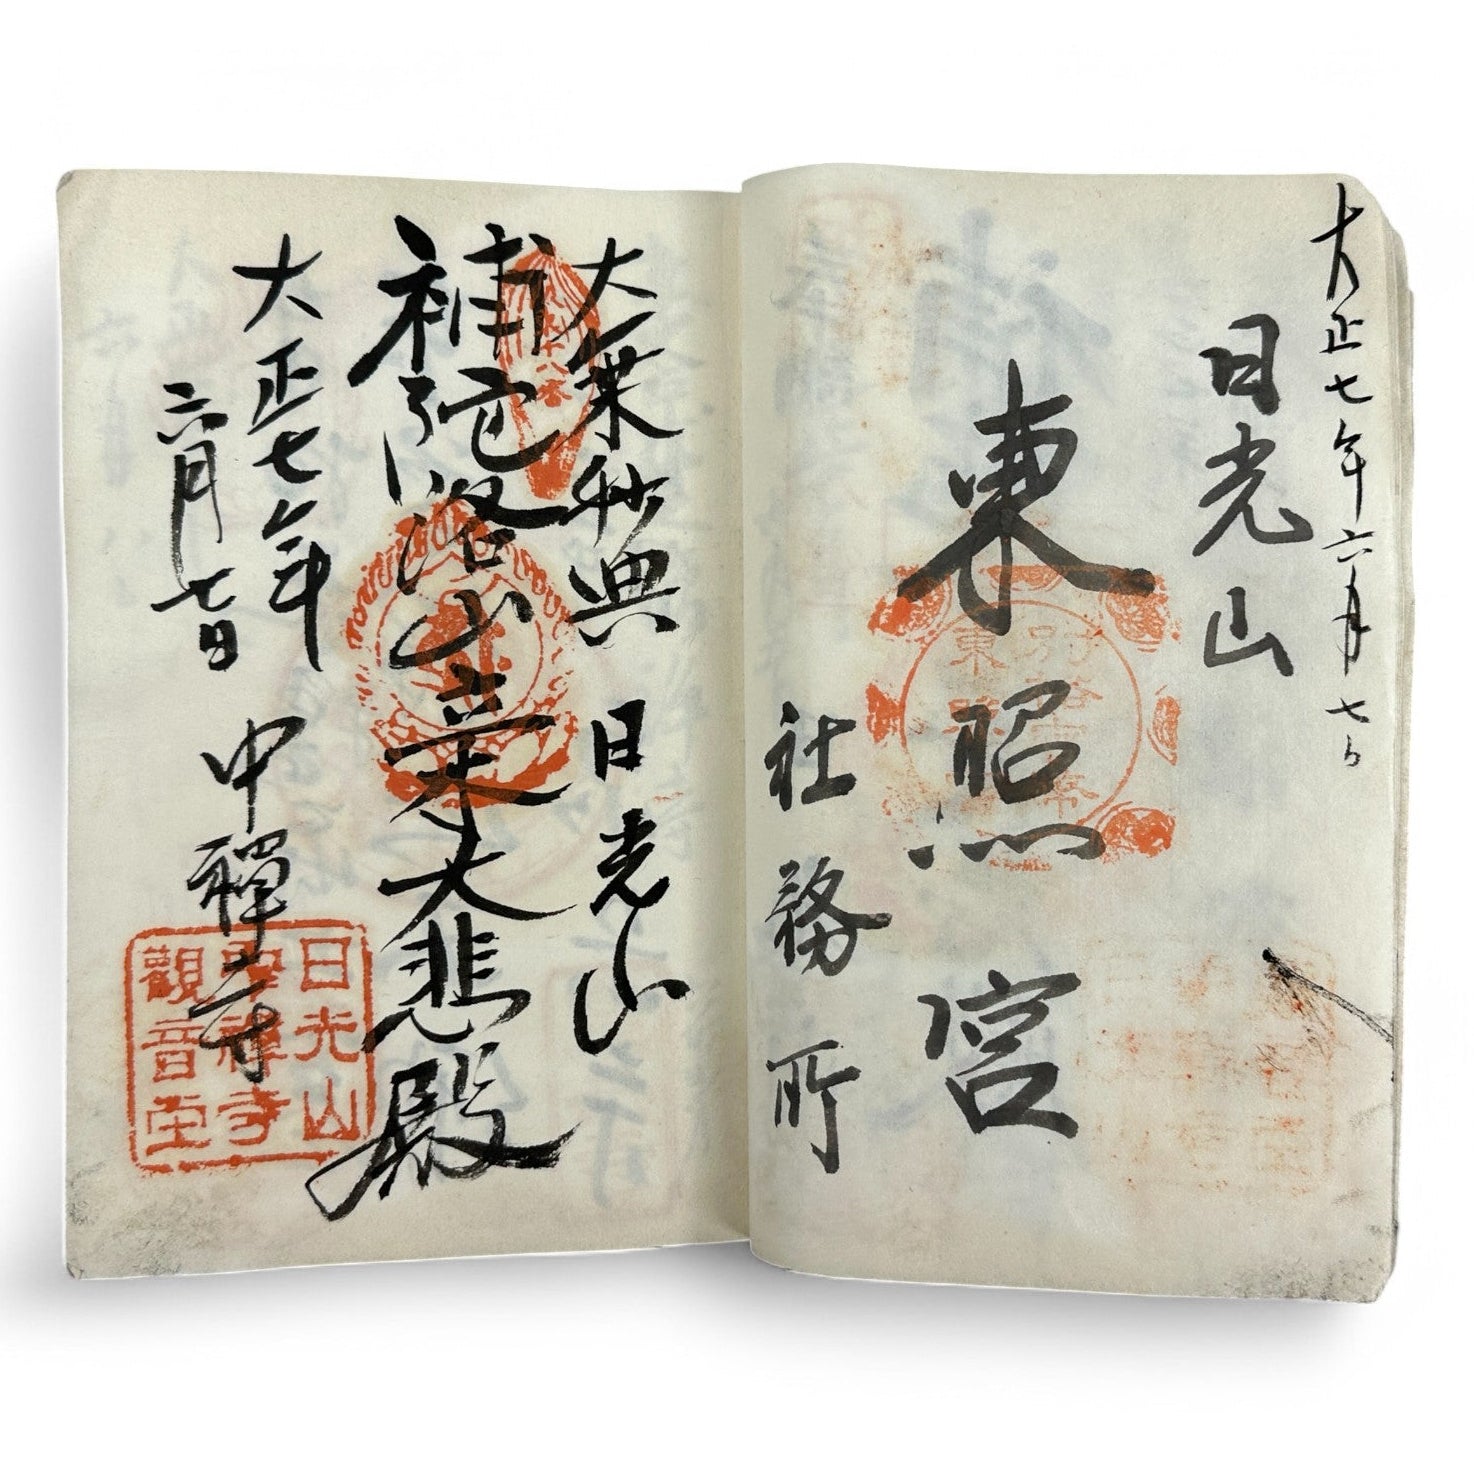 大正七年六月七日
日光山
東照宮
社務所
別格官幣
東照宮
大乗妙典 日光山
補陀洛山立木大悲殿
大正七年
六月七日
中禅寺
日光山
中禅寺
観音堂